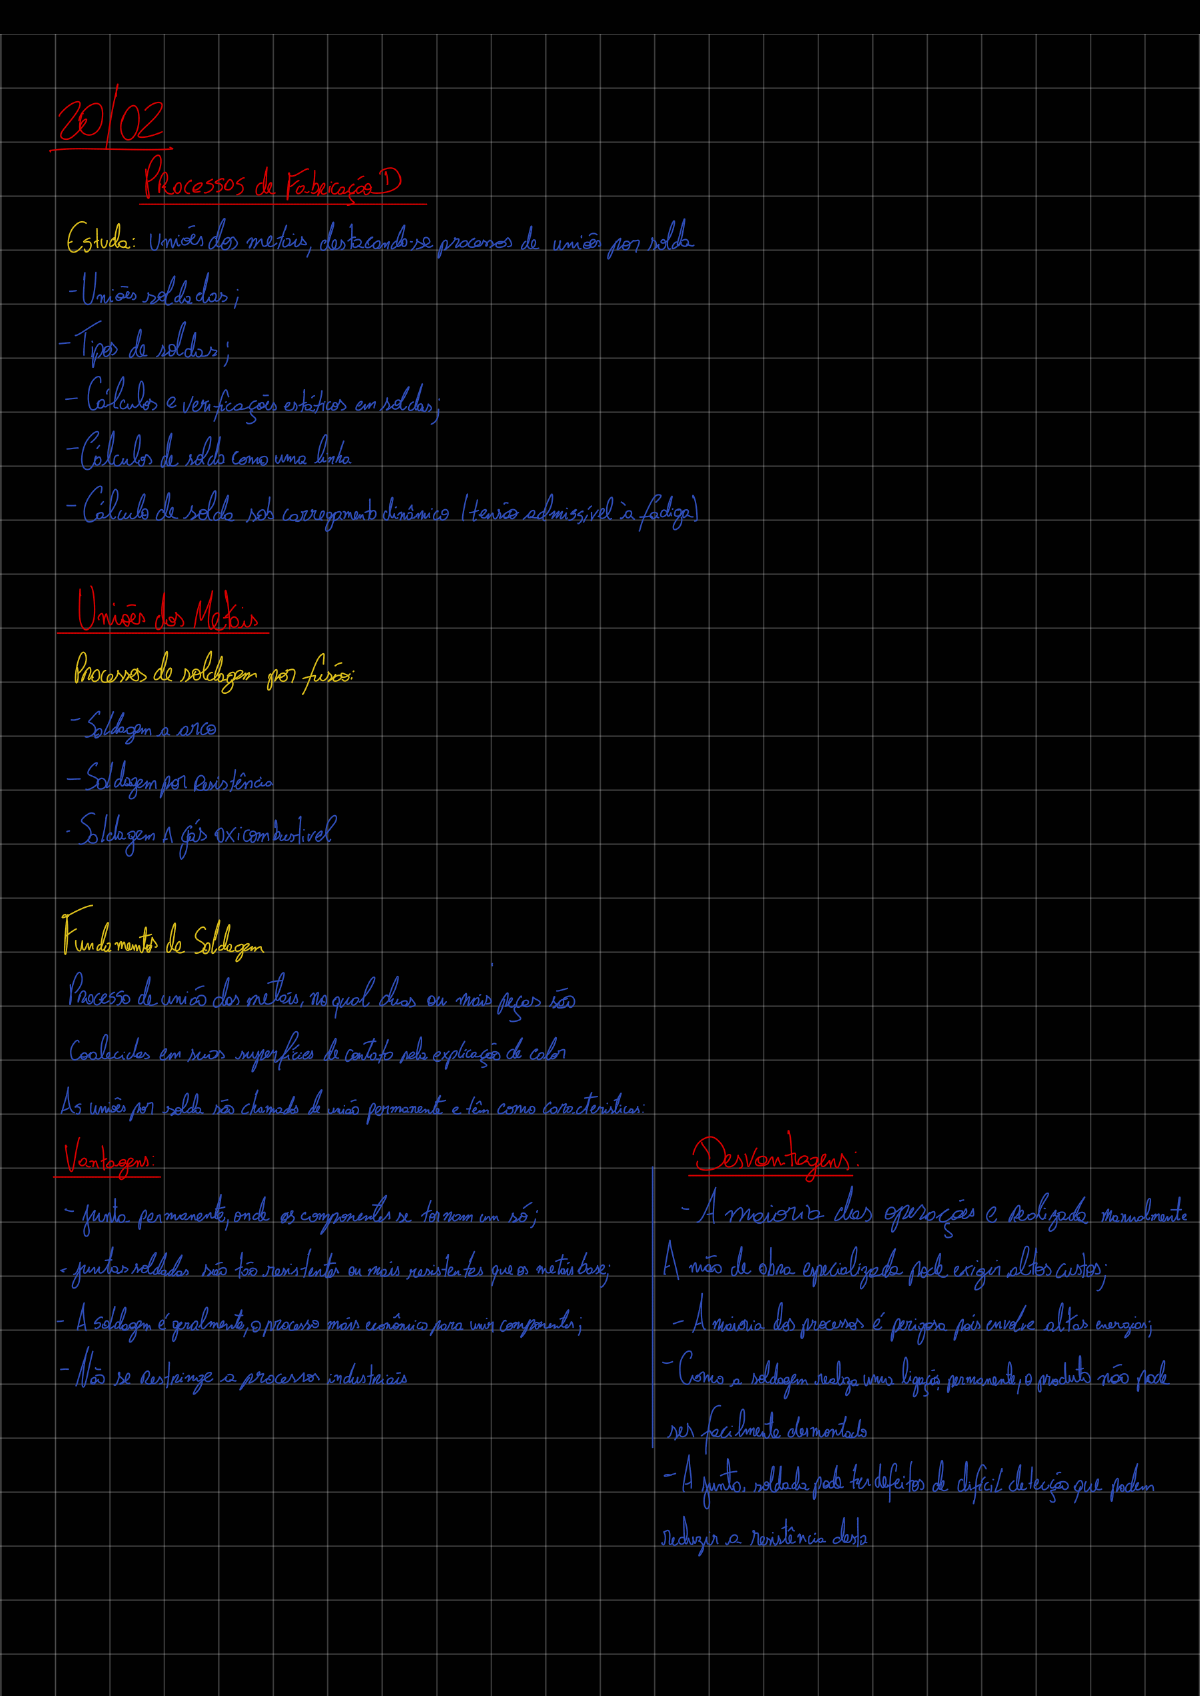 20/02
Processos de Fabricação D
Estuda: Uniões dos metais, destacando-se processos de uniões por solda
- Uniões soldadas;
- Tipos de soldas;
- Cálculos e verificações estáticos em soldas;
- Cálculos de solda como uma linha
- Cálculo de solda sob carregamento dinâmico (tensão admissível à fadiga)
Uniões dos Metais
Processos de soldagem por fusão:
- Soldagem a arco
- Soldagem por Resistência
- Soldagem A gás oxicombustivel
Fundamentos de Soldagem
Processo de união dos metais, no qual duas ou mais peças são
Coalecidas em suas superfícies de contato pela explicação de calor
As uniões por solda são chamadas de união permanente e têm como caracteristicas:
Vantagens:
- junta permanente, onde os componentes se tornam um só;
- juntas soldadas são tão resistentes ou mais resistentes que os metais base;
- A soldagem é geralmente, o processo mais econômico para unir componentes;
- Não se Restringe a processos industriais
Desvantagens:
- A maioria das operações e Realizada manualmente
A mão de obra especializada pode exigir altos custos;
- A maioria dos processos é perigosa pois envolve altas energias;
- Como a soldagem realiza uma ligação permanente, o produto não pode
ser facilmente desmontado
- A junta, soldada pode ter defeitos de difícil detecção que podem
reduzir a resistência desta